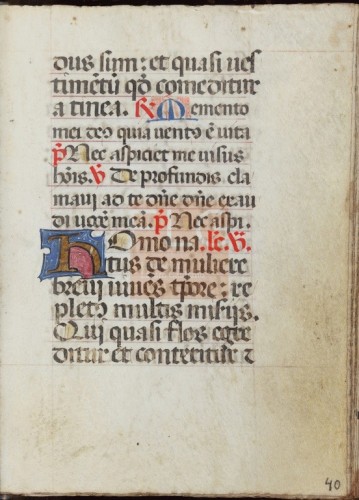 dus sum: et quasi ues
timētū qd̄ comeditur
a tinea. R̃ Memento
mei deꝰ quia uentꝰ ē uita
P̃ Nec aspiciet me uisus
hoīs. V̄ De profundis cla
maui ad te dn̄e dn̄e exau
di uocē meā. P̃ Nec aspi.
Homo na. Lc̄. V̄.
tus de muliere
breui uiuēs tp̄ore: re
pletꝰ multis misijs.
Qui quasi flos egre
ditur et conteritur ⁊
40